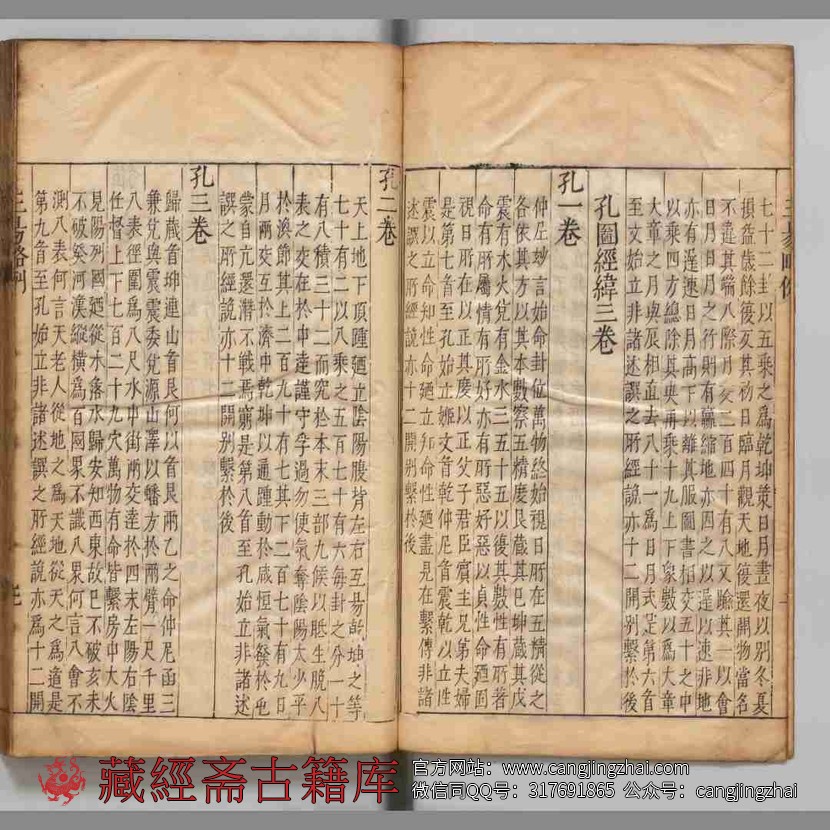 七十二卦以五乘之爲乾坤策日月晝夜以別冬夏
損益歲餘後亥其初日臨月觀天地復還開物當名
不違其端八際月交三百四十有八文贍其一以會
日月日月之行則有羸縮地亦因之以遲以速非地
亦有遲速日月高下以離其服圖書相交五十之中
以乘四方總除其央再乘十九上下象數以爲大章
大章之月與辰相直去八十一爲日月式是第六首
至文始立非諸述譔之所經說亦十二開別繫於後
孔圖經緯三卷
孔一卷
仲尼妙言始命卦位萬物終始視日所在五精從之
各依其方以其本數察五精度艮蔵其巳坤蔵其戊
震有木火兌有金水三五十五以復其數性有所著
命有所屬情有所好亦有所惡好惡以貞性命廼固
視日所在以正其慶以正父子君臣賓主兄第夫婦
是第七首至孔始立姬文音乾仲尼音震乾以立性
震以立命知性命廼立知命性廼盡見在繫傳非諸
述譔之所經說亦十二開別繫於後
孔二卷
天上地下頂踵廼立陰陽腹背左右互易乾坤之等
七十有二以八乘之五百七十有六每卦之分一十
有八積三十二而究於本末三部九候以胝生脫八
表之交在於中逵謹守孚過勿使氣奪陰陽太少平
於渙節其上二百九十有七其下二百七十有九日
月兩交互於濟中乾坤以通踵動於咸恒氣發於屯
蒙自亢還潛不戰焉窮是第八首至孔始立非諸述
譔之所經說亦十二開別繫於後
孔三卷
歸蔵首坤連山首艮何以首艮兩乙之命仲尼函三
兼兌與震震委兌源山澤以蟠方於兩臂一尺千里
八表徑圍爲八尺水中街兩交逵於四末左陽右陰
任督上下七百二十九穴萬物有命皆繫房中大火
見陽列國廼從水落水歸安知西東故巳不破亥未
不破癸河漢縱橫爲百网罘不讖八罘何言八會不
測八表何言天老人從地之爲天地從天之爲道是
第九首至孔始立非諸述譔之所經說亦爲十二開
藏經斋古籍库
官方网站：www.cangjingzhai.com
微信同QQ号：317691865 公众号：cangjingzhai